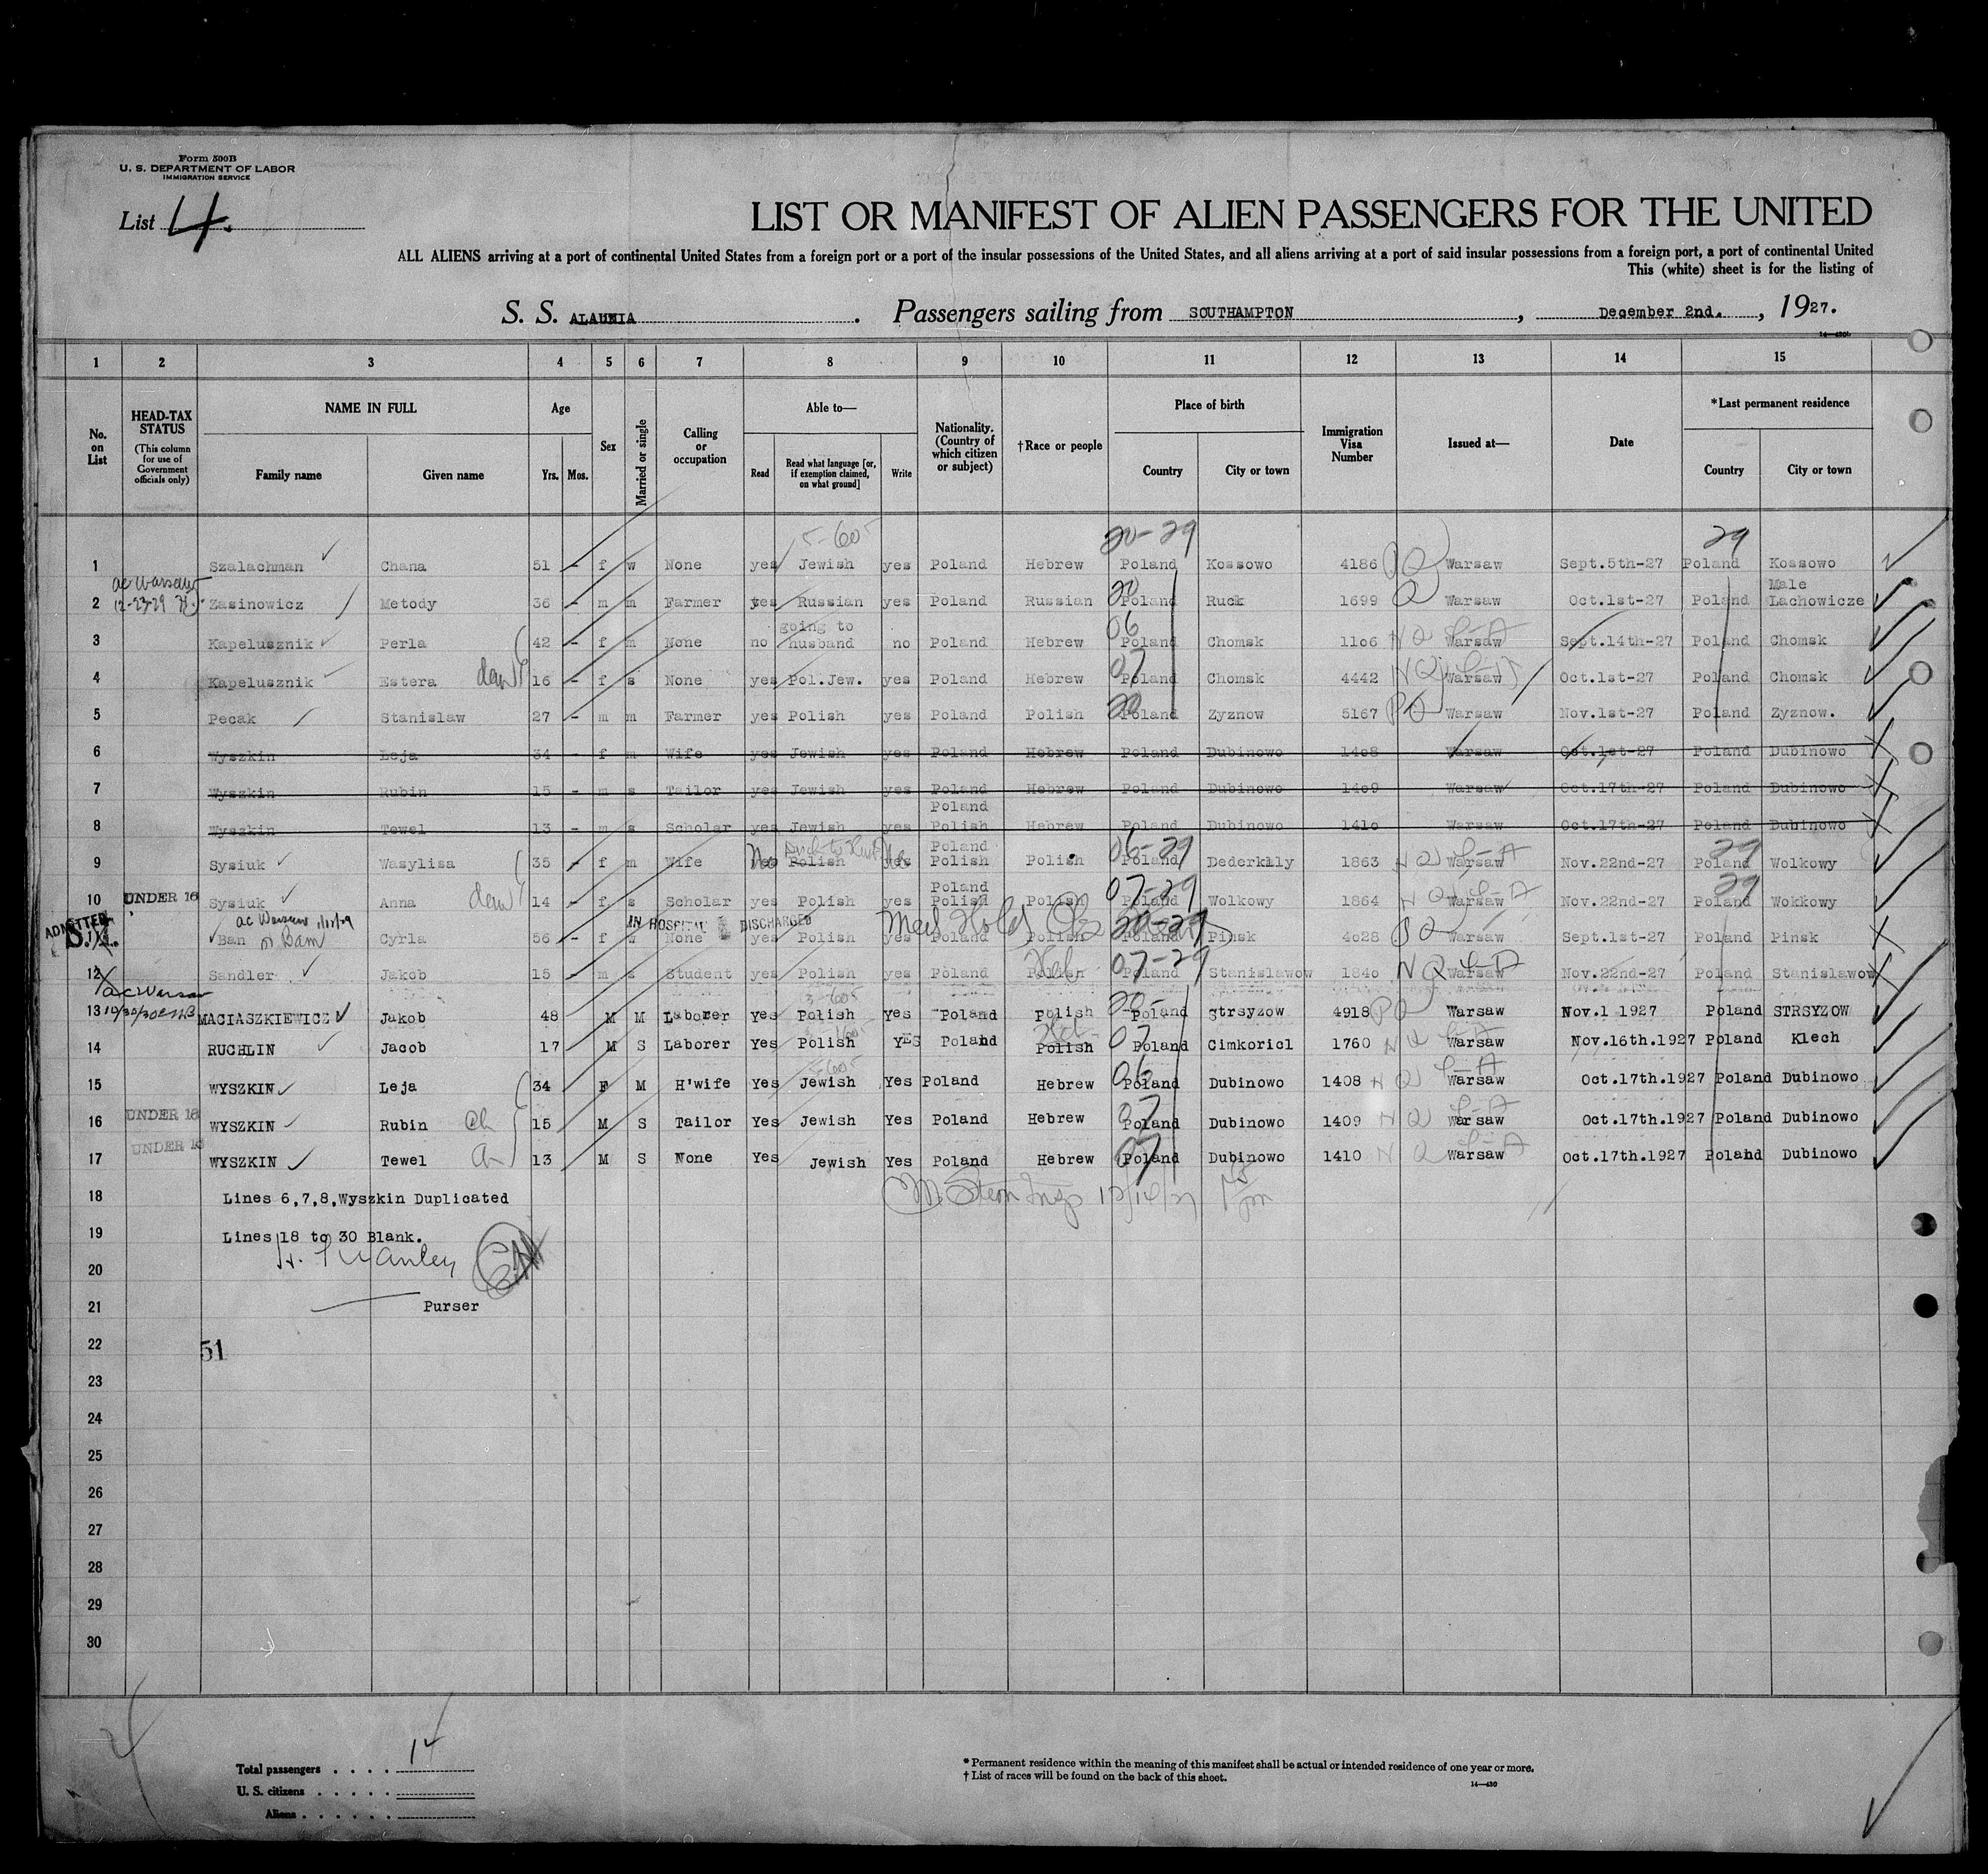 Form 500B
U. S. DEPARTMENT OF LABOR
IMMIGRATION SERVICE
List 4.
LIST OR MANIFEST OF ALIEN PASSENGERS FOR THE UNITED
ALL ALIENS arriving at a port of continental United States from a foreign port or a port of the insular possessions of the United States, and all aliens arriving at a port of said insular possessions from a foreign port, a port of continental United
This (white) sheet is for the listing of
S. S. ALAUNIA. Passengers sailing from SOUTHAMPTON, December 2nd., 1927.
14—430
1 2 3 4 5 6 7 8 9 10 11 12 13 14 15
No. on List
HEAD-TAX STATUS (This column for use of Government officials only)
NAME IN FULL Family name Given name
Age Yrs. Mos.
Sex
Married or single
Calling or occupation
Able to— Read Read what language [or, if exemption claimed, on what ground] Write
Nationality. (Country of which citizen or subject)
†Race or people
Place of birth Country City or town
Immigration Visa Number
Issued at—
Date
*Last permanent residence Country City or town
5-605 20-29 29
1 Szalachman Chana 51 - f w None yes Jewish yes Poland Hebrew Poland Kossowo 4186 PQ Warsaw Sept.5th-27 Poland Kossowo
ac Warsaw 12-23-29
2 Zasinowicz Metody 36 - m m Farmer yes Russian yes Poland Russian 20 Poland Ruck 1699 Q Warsaw Oct.1st-27 Poland Male Lachowicze
3 Kapelusznik Perla 42 - f m None no going to husband no Poland Hebrew 06 Poland Chomsk 1106 NQ Warsaw Sept.14th-27 Poland Chomsk
4 Kapelusznik Estera dau 16 - f s None yes Pol.Jew. yes Poland Hebrew 07 Poland Chomsk 4442 NQ Warsaw Oct.1st-27 Poland Chomsk
5 Pecak Stanislaw 27 - m m Farmer yes Polish yes Poland Polish 20 Poland Zyznow 5167 PQ Warsaw Nov.1st-27 Poland Zyznow.
6 Wyszkin Leja 34 - f m Wife yes Jewish yes Poland Hebrew Poland Dubinowo 1408 Warsaw Oct.1st-27 Poland Dubinowo
7 Wyszkin Rubin 15 - m s Tailor yes Jewish yes Poland Hebrew Poland Dubinowo 1409 Warsaw Oct.17th-27 Poland Dubinowo
8 Wyszkin Tewel 13 - m s Scholar yes Jewish yes Poland Polish Hebrew Poland Dubinowo 1410 Warsaw Oct.17th-27 Poland Dubinowo
9 Sysiuk Wasylisa 35 - f m Wife No yes Polish yes No Poland Polish Polish 06-29 Poland Dederkally 1863 NQ Warsaw Nov.22nd-27 29 Poland Wolkowy
10 UNDER 16 Sysiuk Anna dau 14 - f s Scholar yes Polish yes Poland Polish Polish 07-29 Poland Wolkowy 1864 NQ Warsaw Nov.22nd-27 29 Poland Wokkowy
ADMITTED S.I. ac Warsaw IN HOSPITAL DISCHARGED Med Hold
Ban or Bam Cyrla 56 - f w None yes Polish yes Poland Polish 20-29 Poland Pinsk 4028 PQ Warsaw Sept.1st-27 Poland Pinsk
12 Sandler Jakob 15 - m s Student yes Polish yes Poland Polish Heb 07-29 Poland Stanislawow 1840 NQ Warsaw Nov.22nd-27 Poland Stanislawow
ac Warsaw 10/30/30 3-605
13 MACIASZKIEWICZ Jakob 48 M M Laborer Yes Polish Yes Poland Polish 20- Poland Strsyzow 4918 PQ Warsaw Nov.1 1927 Poland STRSYZOW
14 RUCHLIN Jacob 17 M S Laborer Yes Polish YES Poland Heb Polish 07 Poland Cimkoricl 1760 NQ Warsaw Nov.16th.1927 Poland Klech
15 WYSZKIN Leja 34 F M H'wife Yes 5-605 Jewish Yes Poland Hebrew 06 Poland Dubinowo 1408 NQ Warsaw Oct.17th.1927 Poland Dubinowo
16 UNDER 16 WYSZKIN Rubin ch 15 M S Tailor Yes Jewish Yes Poland Hebrew 07 Poland Dubinowo 1409 NQ Warsaw Oct.17th.1927 Poland Dubinowo
17 UNDER 16 WYSZKIN Tewel ch 13 M S None Yes Jewish Yes Poland Hebrew 07 Poland Dubinowo 1410 NQ Warsaw Oct.17th.1927 Poland Dubinowo
18 Lines 6,7,8,Wyszkin Duplicated Stern Insp 12/14/27
19 Lines 18 to 30 Blank.
20
21 Purser
22 51
23
24
25
26
27
28
29
30
Total passengers . . . . 14
U. S. citizens . . . . .
Aliens . . . . . .
* Permanent residence within the meaning of this manifest shall be actual or intended residence of one year or more.
† List of races will be found on the back of this sheet.
14—430